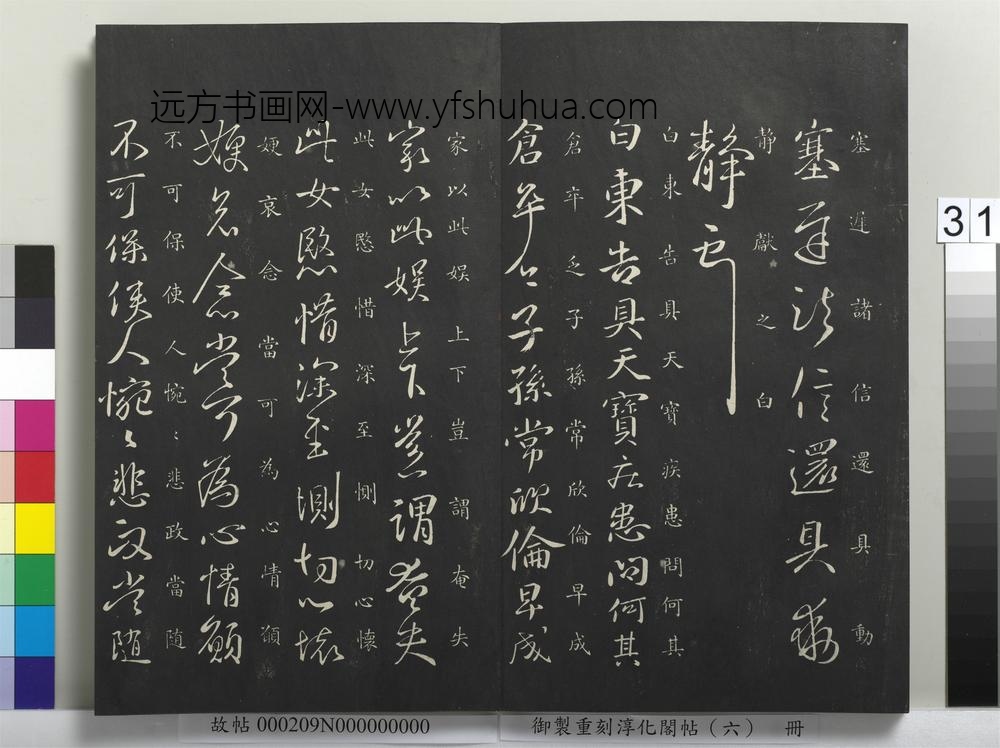 远方书画网-www.yfshuhua.com
塞遲諸信還具動
塞遲諸信還具動
靜獻之白
靜
白東告具天寶疾患問何其
白東告具天寶疾患問何其
倉卒乏子孫常欣倫早成
倉卒乏子孫常欣倫早成
家以此娱上下豈謂奄失
家以此娱上下豈謂奄失
此女愍惜深至惻切心懷
此女愍惜深至惻切心懷
哀念當可為心情願
哀念當可為心情願
不可保使人惋〻悲政當随
不可保使人惋〻悲政當随
31
故帖 000209N000000000
御製重刻淳化閣帖(六) 冊